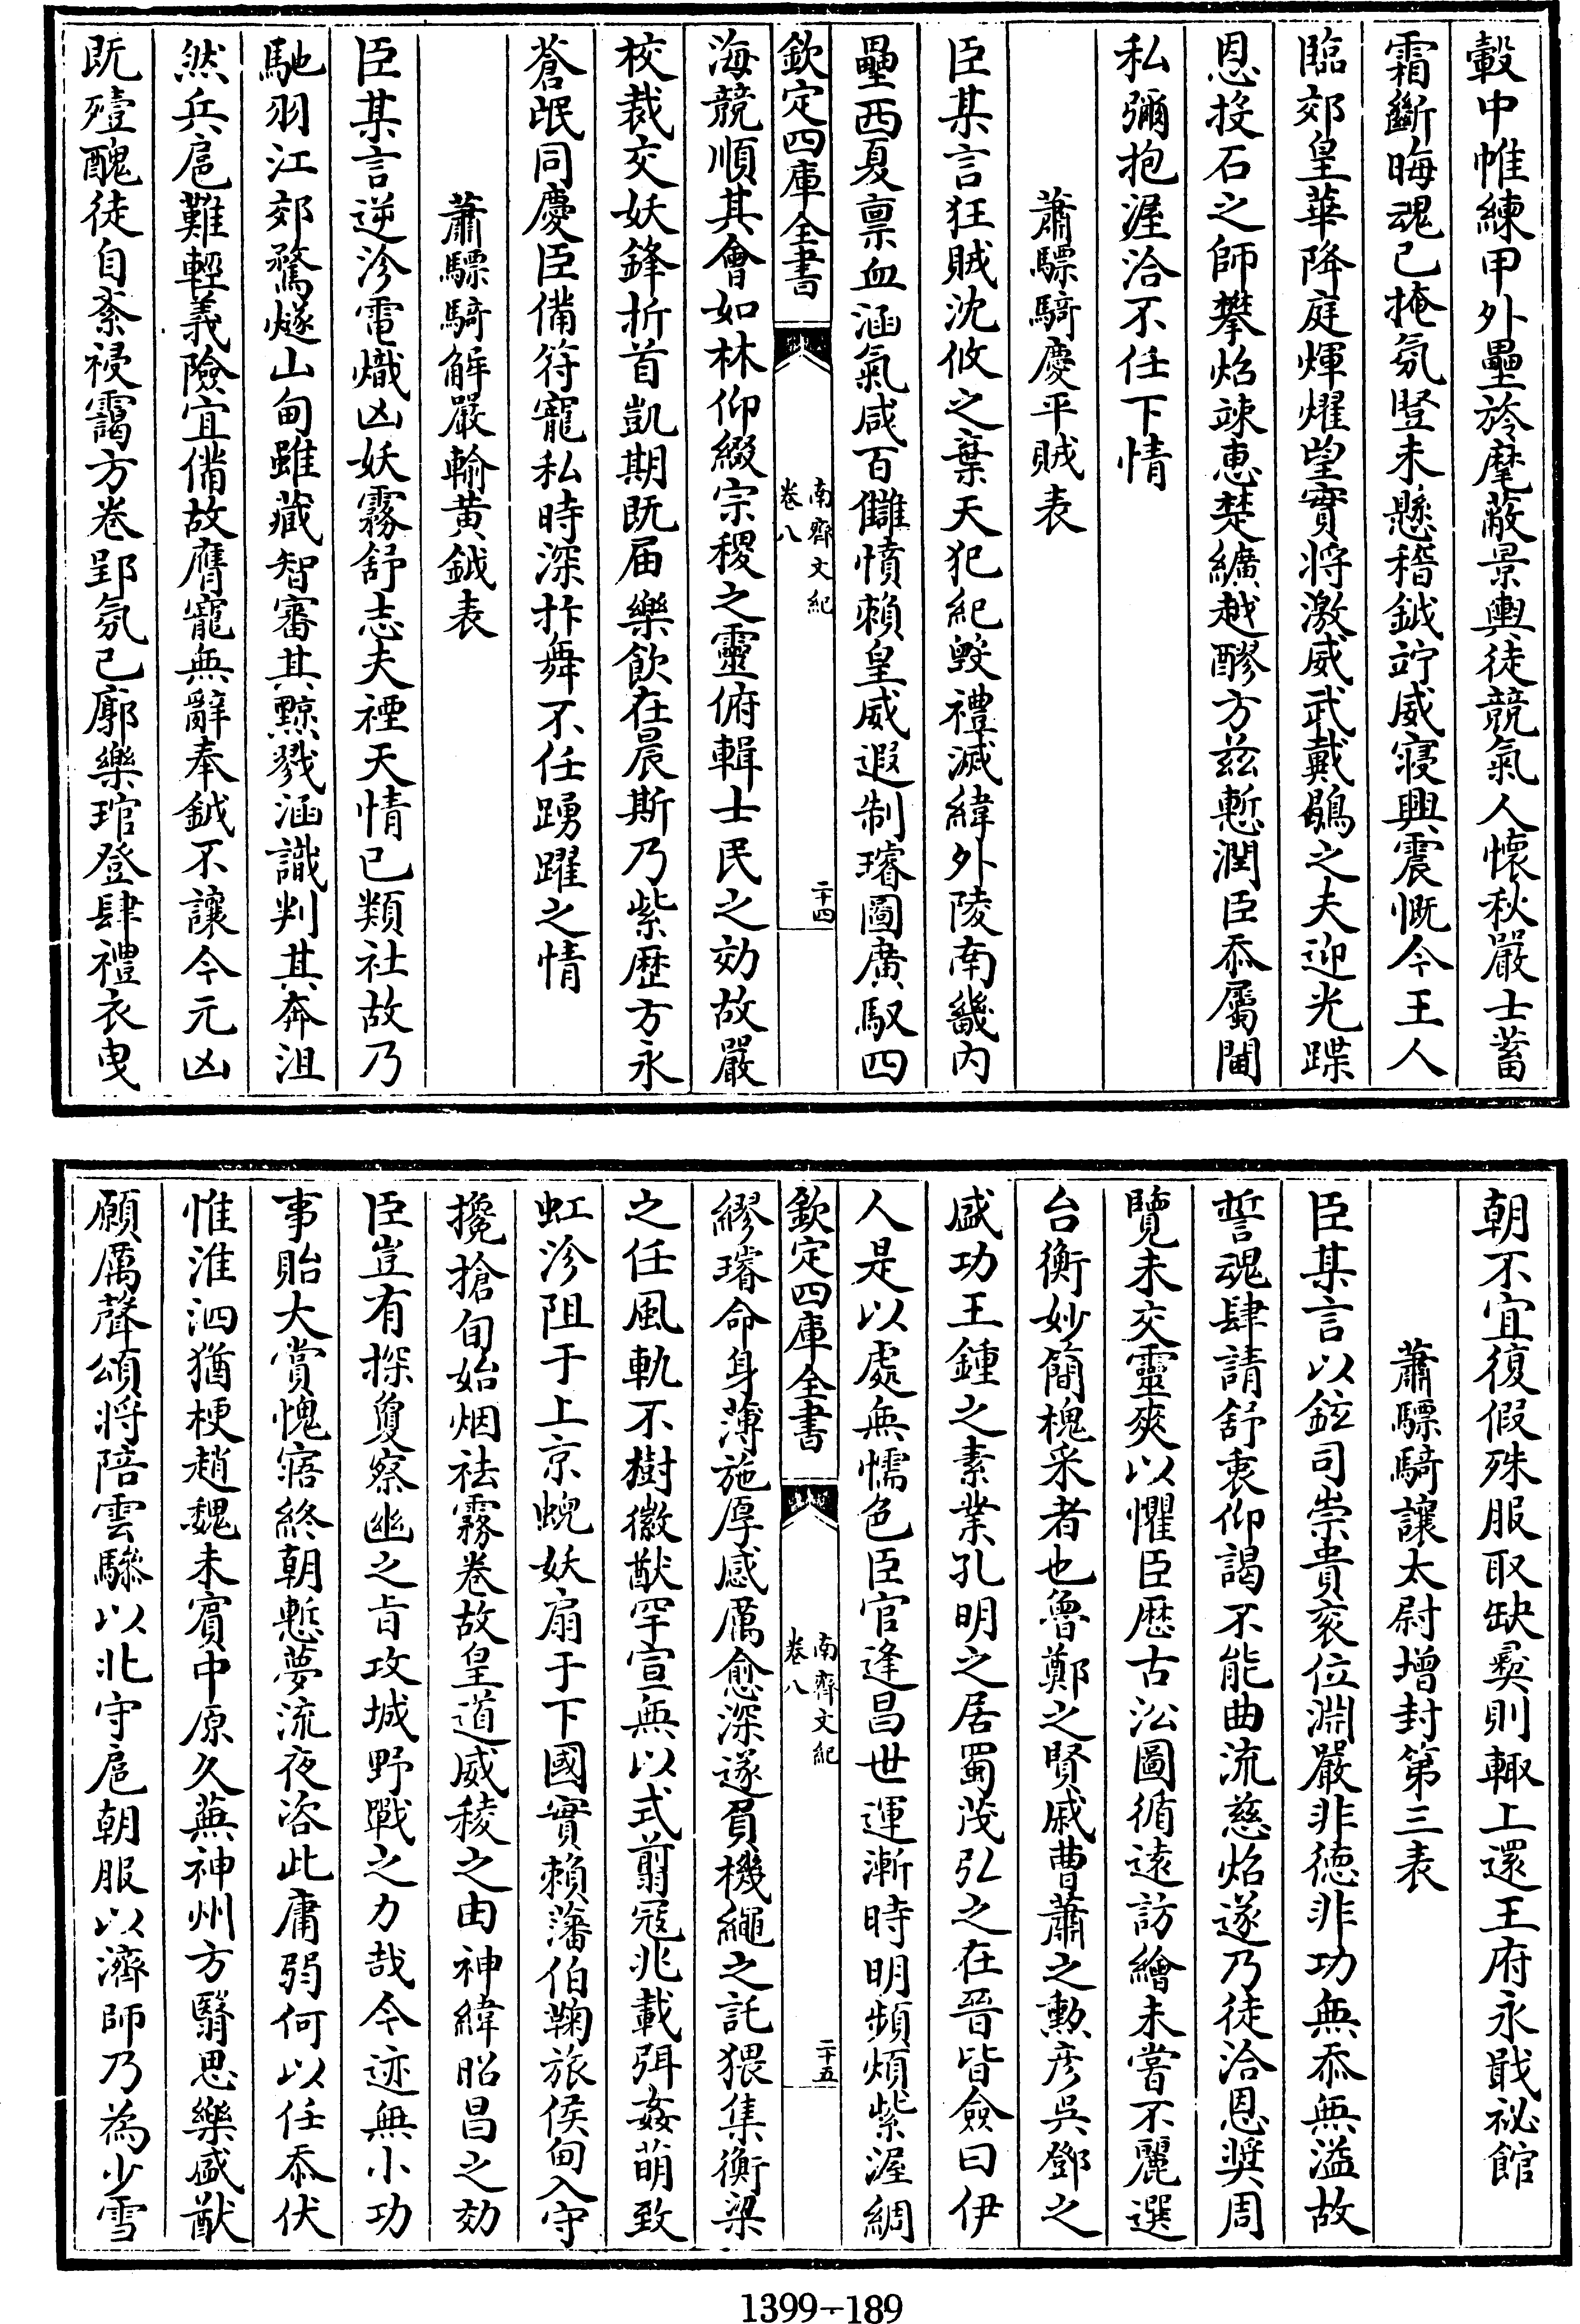 轂中惟練甲外壘旍麾蔽景輿徒競氣人懷秋嚴士蓄
霜斷晦魂已掩氛豎未懸稽鉞竚威寢興震慨今王人
臨郊皇華降庭煇燿望實將激威武戴鶡之夫迎光蹀
恩投石之師攀炤竦恵楚纊越醪方兹慙潤臣忝屬閫
私彌抱渥洽不任下情
蕭驃騎慶平賊表
臣某言狂賊沈攸之棄天犯紀毀禮滅緯外陵南畿内
壘西夏禀血涵氣咸百讎憤賴皇威遐制璿圖廣馭四
欽定四庫全書
南齊文紀
卷八
二十四
海競順其會如林仰綴宗稷之靈俯輯士民之効故嚴
校裁交妖鋒折首凱期既届樂飲在晨斯乃紫歴方永
蒼氓同慶臣備符寵私時深抃舞不任踴躍之情
蕭驃騎解嚴輸黄鉞表
臣某言逆沴電熾凶妖霧舒志夫禋天情已類社故乃
馳羽江郊驚燧山甸雖藏智審其黥戮涵識判其奔沮
然兵扈難輕義險宜備故膺寵無辭奉鉞不讓今元凶
既殪醜徒自紊祲靄方卷郢氛已廓樂琯登肆禮衣曳
朝不宜復假殊服取缺彛則輙上還王府永戢祕館
蕭驃騎讓太尉增封第三表
臣某言以鉉司崇貴衮位淵嚴非徳非功無忝無溢故
誓魂肆請舒衷仰謁不能曲流慈炤遂乃徒洽恩奬周
覽未交靈爽以懼臣歴古㳂圖循遠訪繪未嘗不麗選
台衡妙簡槐采者也魯鄭之賢戚曹蕭之勲彦吳鄧之
盛功王鍾之素業孔明之居蜀茂弘之在晉皆僉曰伊
人是以處無懦色臣官逢昌世運漸時明頻煩紫渥綢
欽定四庫全書
南齊文紀
卷八
二十五
繆璿命身薄施厚感厲愈深遂負機繩之託猥集衡梁
之任風軌不樹徽猷罕宣無以式翦冦兆載弭姦萌致
虹沴阻于上京蜺妖扇于下國實賴藩伯鞠旅侯甸入守
攙搶旬始烟祛霧卷故皇道威稜之由神緯昭昌之効
臣豈有探敻察幽之㫖攻城野戰之力哉今迹無小功
事貽大賞愧寤終朝慙夢流夜咨此庸弱何以任忝伏
惟淮泗猶梗趙魏未賓中原久蕪神州方翳思樂盛猷
願厲聲頌將陪雲驂以北守扈朝服以濟師乃為少雪
1399-189